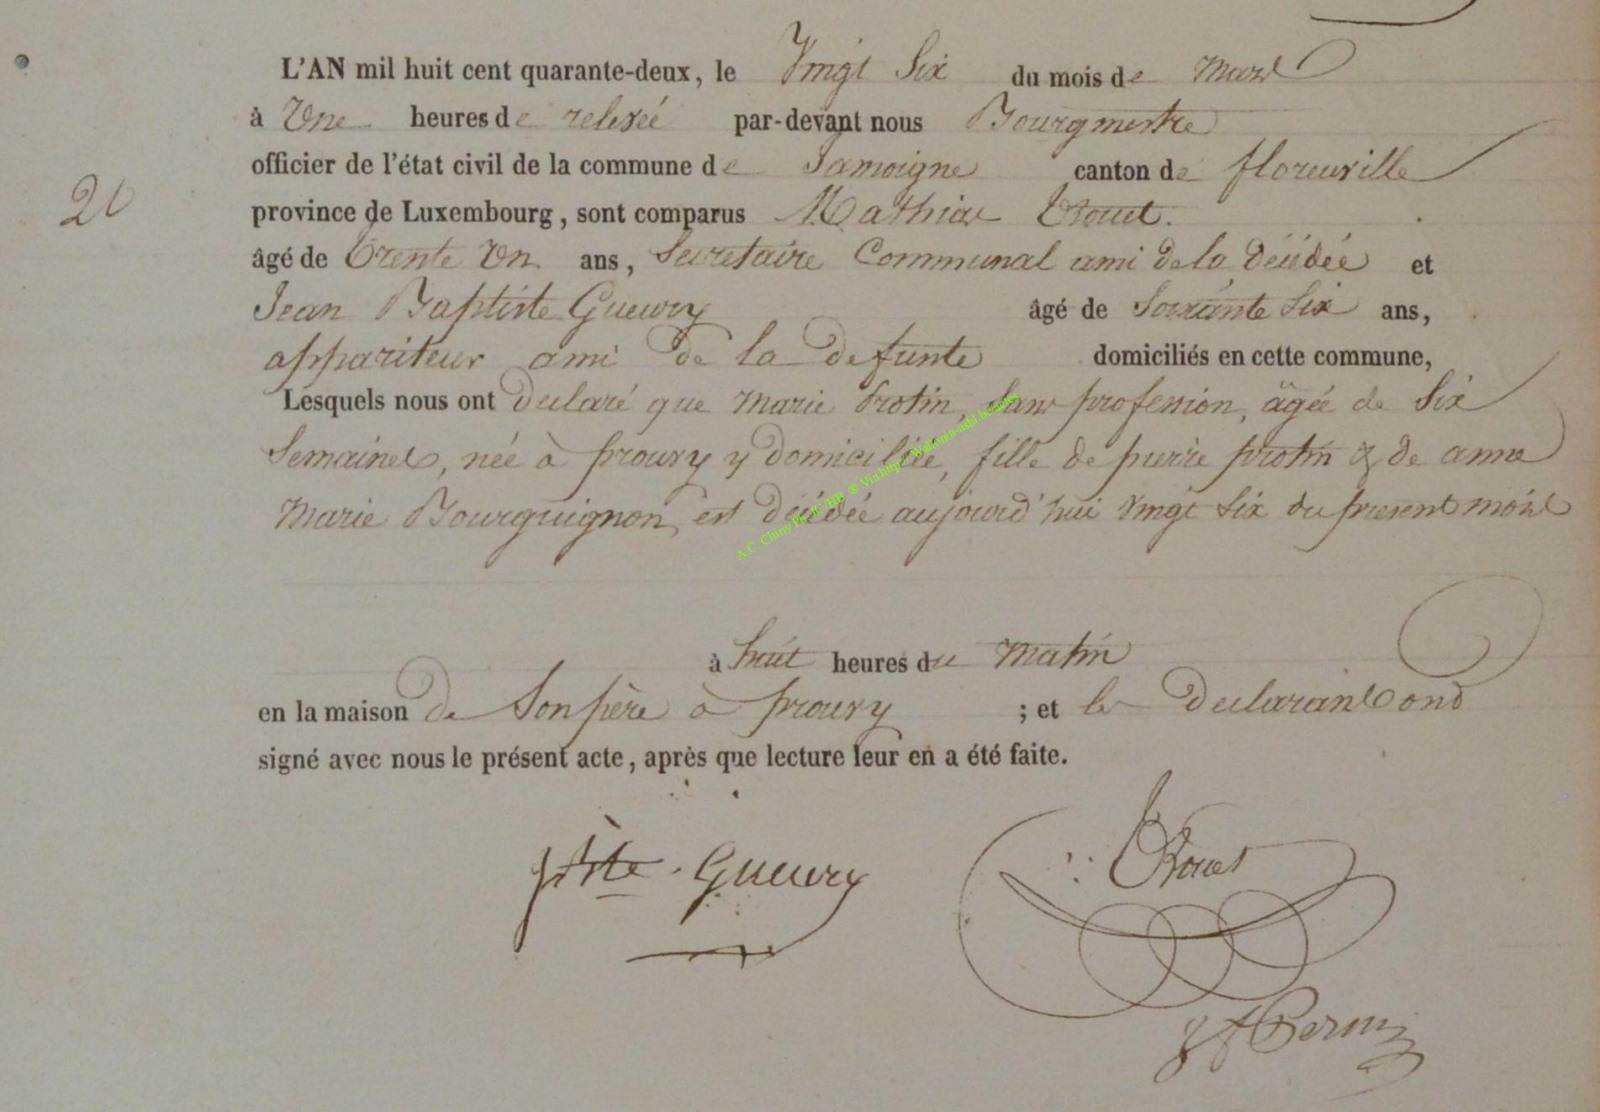 L'AN mil huit cent quarante-deux, le Vingt Six du mois de Mars
à Une heures de relevée par-devant nous Bourgmestre
officier de l'état civil de la commune de Jamoigne canton de florenville
20
province de Luxembourg, sont comparus Mathias
âgé de Trente Un ans, Secretaire Communal ami de la décédée et
Jean Baptiste Gueury âgé de Soixante Six ans,
appariteur ami de la defunte domiciliés en cette commune,
Lesquels nous ont declaré que Marie Protin, Sans profession, âgée de Six
Semaines, née à prouvy y domiciliée, fille de pierre protin & de anne
Marie Bourguignon, est décédée aujourd'hui Vingt Six du present mois
à huit heures du Matin
en la maison de Son père à prouvy ; et les declarants ond
signé avec nous le présent acte, après que lecture leur en a été faite.
Gueury